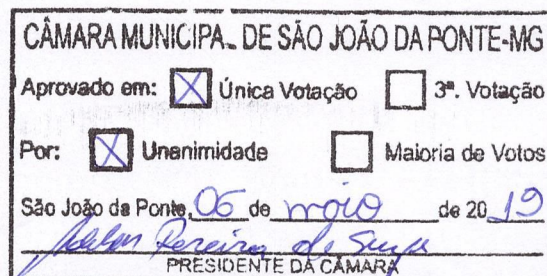 CÂMARA MUNICIPAL DE SÃO JOÃO DA PONTE-MG
Aprovado em: [X] Única Votação [ ] 3ª. Votação
Por: [X] Unanimidade [ ] Maioria de Votos
São João da Ponte, 06 de maio de 2019
Pereira de Souza
PRESIDENTE DA CÂMARA